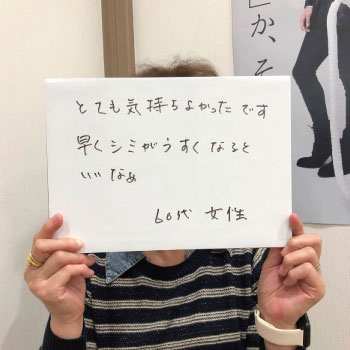 か、そ
とても気持ちよかったです
早くシミがうすくなると
いいなぁ
60代 女性